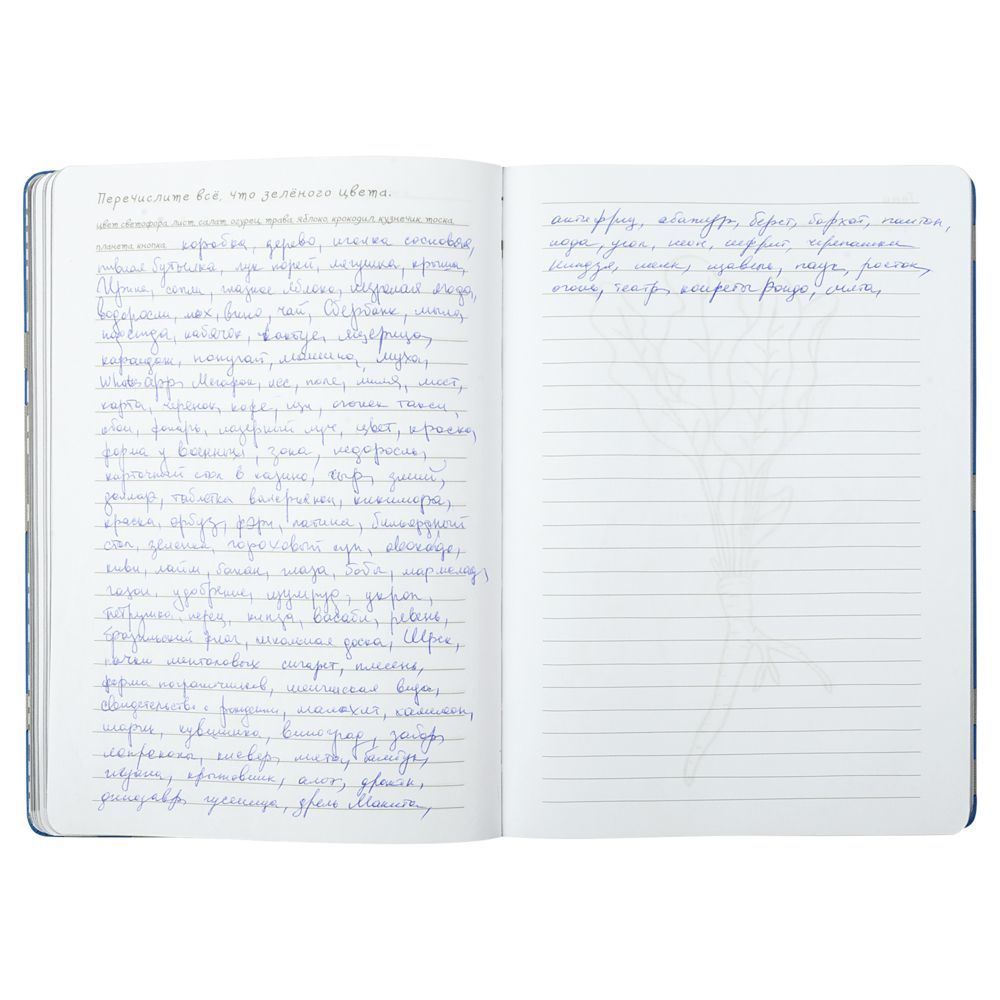 Перечислите всё, что зелёного цвета.
цвет светофора, лист, салат, огурец, трава, яблоко, крокодил, кузнечик, тоска,
планета, кнопка, коробка, дерево, иголка сосновая,
пивная бутылка, лук порей, лягушка, крыша,
сопли, глазное яблоко, незрелая ягода,
водоросли, мох, вино, чай, Сбербанк, мыло,
кабачок, кактус, ящерица,
карандаш, попугай, машина, муха,
WhatsApp, Мегафон, лес, поле, миля, мост,
карта, черенок, кофе, щи, огонек такси,
обои, фонарь, лазерный луч, цвет, краска,
форма у военных, зона, недоросль,
карточный стол в казино, сыр, змий,
доллар, таблетка валерьянки, кикимора,
краска, арбуз, фэри, патина, бильярдный
стол, зеленка, гороховый суп, авокадо,
киви, лайм, банан, глаза, бобы, мармелад,
газон, удобрение, изумруд, укроп,
петрушка, перец, кинза, васаби, ревень,
бразильский флаг, школьная доска, Шрек,
пачки ментоловых сигарет, плесень,
форма пограничников, шенгенская виза,
свидетельство о рождении, малахит, хамелеон,
шарик, кувшинка, виноград, забор,
лепреконы, клевер, мята, бамбук,
крыжовник, алоэ, дракон,
динозавр, гусеница, дрель Макита,
антифриз, абажур, берет, бархат, питон,
угол, неон, нефрит, черепашки
Ниндзя, шелк, щавель, паук, росток,
театр, конфеты Рондо, смета,